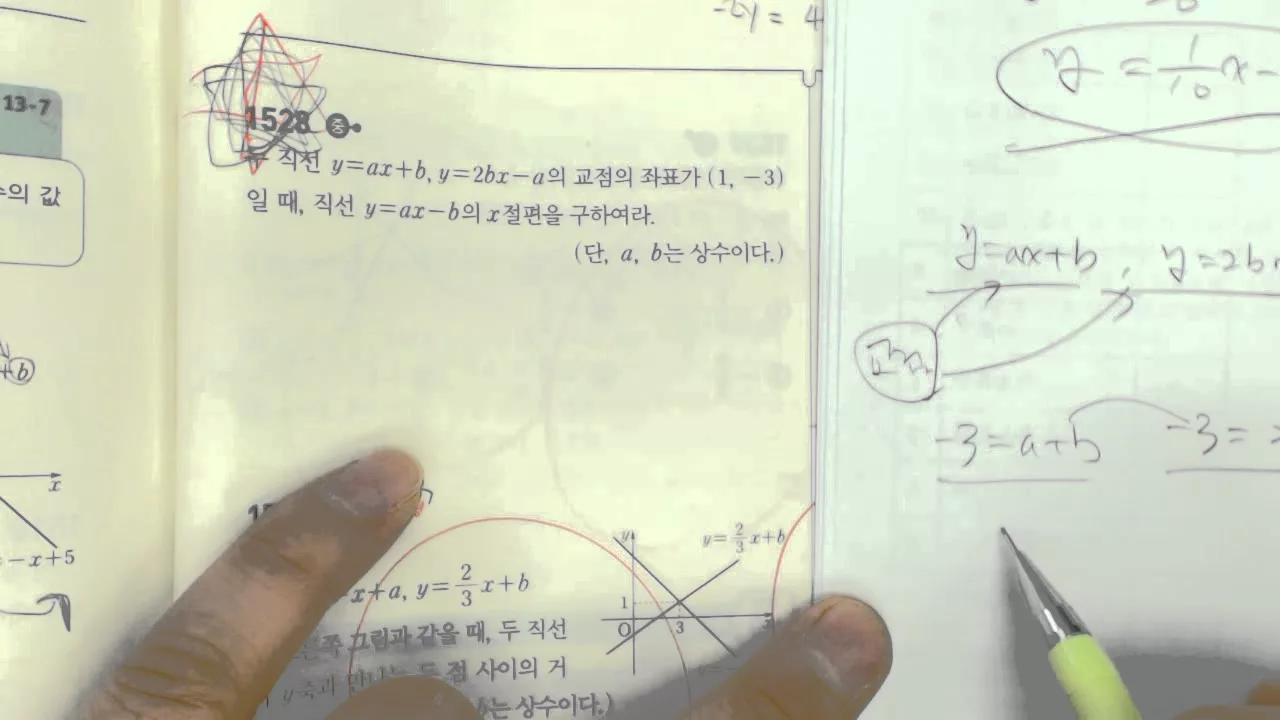 -2y = 4
13-7
의 값
+b
x
-x+5
1528 중
두 직선 y=ax+b, y=2bx-a의 교점의 좌표가 (1, -3)
일 때, 직선 y=ax-b의 x절편을 구하여라.
(단, a, b는 상수이다.)
x+a, y=2/3 x+b
쪽 그림과 같을 때, 두 직선
y축과 만나는 두 점 사이의 거
b는 상수이다.)
y
y=2/3 x+b
1
O
3
y = 1/10 x -
y=ax+b, y=2b
교점
-3=a+b
-3=